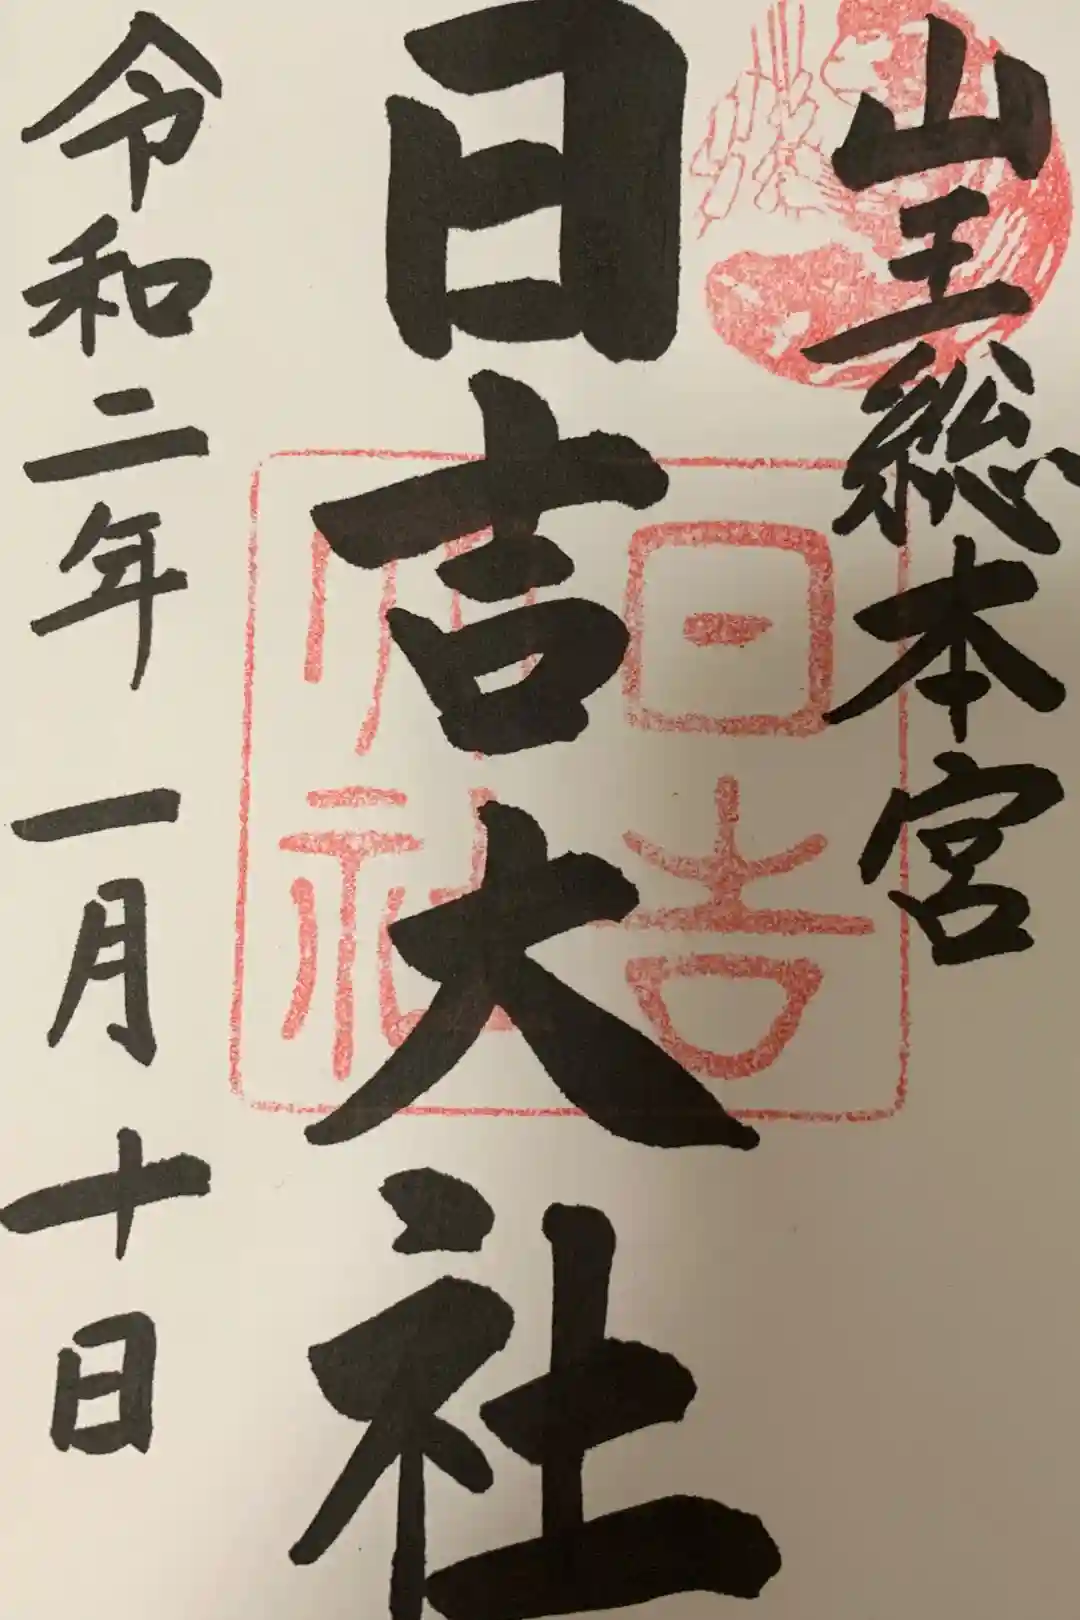 山王総本宮
日吉大社
令和二年一月十日
日吉
大社